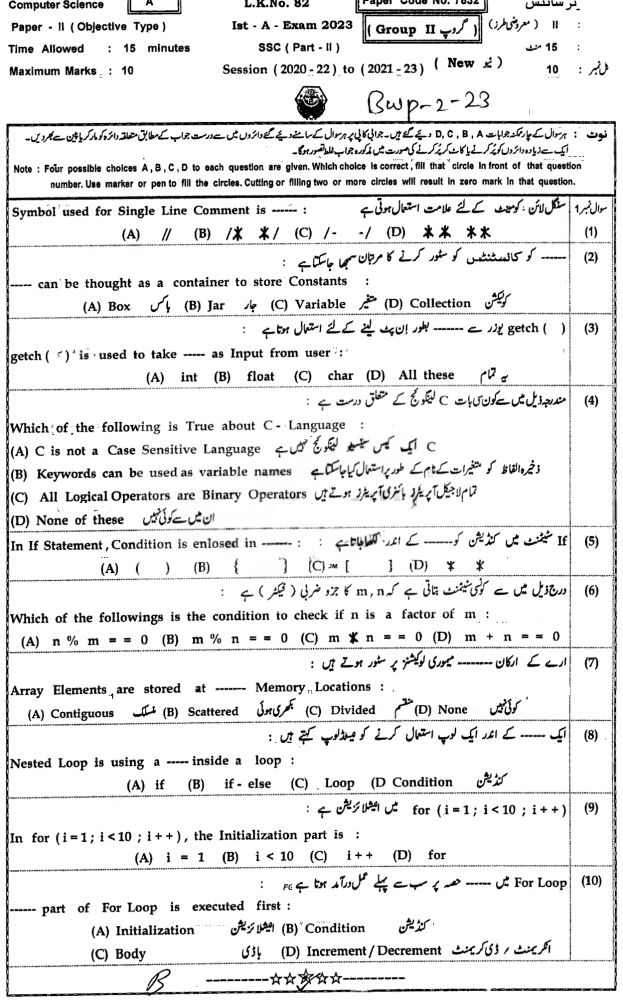 Computer Science A L.K.No. 82 Paper Code No. 7832
Paper - II ( Objective Type ) Ist - A - Exam 2023 ( Group II گروپ ) II ( معروضی طرز ) :
Time Allowed : 15 minutes SSC ( Part - II ) 15 منٹ :
Maximum Marks : 10 Session (2020-22) to (2021-23) ( New نیو ) 10
Bwp-2-23
نوٹ : ہر سوال کے چار ممکنہ جوابات D , C , B , A دیئے گئے ہیں۔ جوابی کاپی پر ہر سوال کے سامنے دیئے گئے دائروں میں سے درست جواب کے مطابق متعلقہ دائرہ کو مارکر یا پین سے بھر دیں۔
ایک سے زیادہ دائروں کو پُر کرنے یا کاٹ کر پُر کرنے کی صورت میں مذکورہ جواب غلط تصور ہوگا۔
Note : Four possible choices A , B , C , D to each question are given. Which choice is correct , fill that circle In front of that question
number. Use marker or pen to fill the circles. Cutting or filling two or more circles will result in zero mark in that question.
Symbol used for Single Line Comment is ------ : سنگل لائن کومینٹ کے لئے علامت استعمال ہوتی ہے سوال نمبر 1
(A) // (B) /* */ (C) /- -/ (D) ** ** (1)
------ کو کانسٹنٹس کو سٹور کرنے کا مرتبان سمجھا جاسکتا ہے : (2)
---- can be thought as a container to store Constants :
(A) Box باکس (B) Jar جار (C) Variable متغیر (D) Collection کولیکشن
getch ( ) یوزر سے ------- بطور اِن پٹ لینے کے لئے استعمال ہوتا ہے : (3)
getch ( ) is used to take ----- as Input from user :
(A) int (B) float (C) char (D) All these یہ تمام
مندرجہ ذیل میں سے کون سی بات C لینگوئج کے متعلق درست ہے : (4)
Which of the following is True about C - Language :
(A) C is not a Case Sensitive Language C ایک کیس سینسیٹو لینگوئج نہیں ہے
(B) Keywords can be used as variable names ذخیرہ الفاظ کو متغیرات کے نام کے طور پر استعمال کیا جاسکتا ہے
(C) All Logical Operators are Binary Operators تمام لاجیکل آپریٹرز بائنری آپریٹرز ہوتے ہیں
(D) None of these ان میں سے کوئی نہیں
In If Statement , Condition is enlosed in ------- : If سٹیٹمنٹ میں کنڈیشن کو ------- کے اندر لکھا جاتا ہے : (5)
(A) ( ) (B) { } (C) [ ] (D) * *
درج ذیل میں سے کونسی سٹیٹمنٹ بتاتی ہے کہ m , n کا جزو ضربی ( فیکٹر ) ہے : (6)
Which of the followings is the condition to check if n is a factor of m :
(A) n % m = = 0 (B) m % n = = 0 (C) m * n = = 0 (D) m + n = = 0
ارے کے ارکان -------- میموری لوکیشنز پر سٹور ہوتے ہیں : (7)
Array Elements are stored at ------- Memory Locations :
(A) Contiguous منسلک (B) Scattered بکھری ہوئی (C) Divided منقسم (D) None کوئی نہیں
ایک ------ کے اندر ایک لوپ استعمال کرنے کو نیسٹڈ لوپ کہتے ہیں : (8)
Nested Loop is using a ----- inside a loop :
(A) if (B) if - else (C) Loop (D Condition کنڈیشن
for ( i = 1 ; i < 10 ; i + + ) میں انیشلائزیشن ہے : (9)
In for ( i = 1 ; i < 10 ; i + + ), the Initialization part is :
(A) i = 1 (B) i < 10 (C) i + + (D) for
For Loop میں ------ حصہ پر سب سے پہلے عمل درآمد ہوتا ہے FG : (10)
------ part of For Loop is executed first :
(A) Initialization انیشلائزیشن (B) Condition کنڈیشن
(C) Body باڈی (D) Increment / Decrement انکریمنٹ / ڈی کریمنٹ
B --------☆☆☆☆☆--------